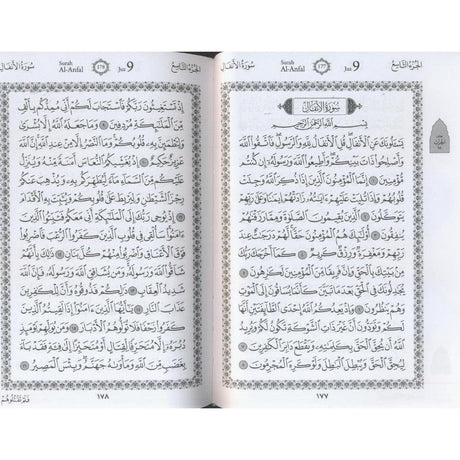 الجزء التاسع
Juz 9
177
Surah Al-Anfal
سورة الأنفال
سُورَةُ الأَنفَالِ
بِسْمِ اللَّهِ الرَّحْمَٰنِ الرَّحِيمِ
يَسْـَٔلُونَكَ عَنِ ٱلْأَنفَالِ قُلِ ٱلْأَنفَالُ لِلَّهِ وَٱلرَّسُولِ فَٱتَّقُوا۟ ٱللَّهَ
وَأَصْلِحُوا۟ ذَاتَ بَيْنِكُمْ وَأَطِيعُوا۟ ٱللَّهَ وَرَسُولَهُۥٓ إِن كُنتُم
مُّؤْمِنِينَ ۝ إِنَّمَا ٱلْمُؤْمِنُونَ ٱلَّذِينَ إِذَا ذُكِرَ ٱللَّهُ وَجِلَتْ
قُلُوبُهُمْ وَإِذَا تُلِيَتْ عَلَيْهِمْ ءَايَٰتُهُۥ زَادَتْهُمْ إِيمَٰنًا وَعَلَىٰ رَبِّهِمْ
يَتَوَكَّلُونَ ۝ ٱلَّذِينَ يُقِيمُونَ ٱلصَّلَوٰةَ وَمِمَّا رَزَقْنَٰهُمْ
يُنفِقُونَ ۝ أُو۟لَٰٓئِكَ هُمُ ٱلْمُؤْمِنُونَ حَقًّا لَّهُمْ دَرَجَٰتٌ عِندَ
رَبِّهِمْ وَمَغْفِرَةٌ وَرِزْقٌ كَرِيمٌ ۝ كَمَآ أَخْرَجَكَ رَبُّكَ
مِنۢ بَيْتِكَ بِٱلْحَقِّ وَإِنَّ فَرِيقًا مِّنَ ٱلْمُؤْمِنِينَ لَكَٰرِهُونَ ۝
يُجَٰدِلُونَكَ فِى ٱلْحَقِّ بَعْدَ مَا تَبَيَّنَ كَأَنَّمَا يُسَاقُونَ إِلَى ٱلْمَوْتِ
وَهُمْ يَنظُرُونَ ۝ وَإِذْ يَعِدُكُمُ ٱللَّهُ إِحْدَى ٱلطَّآئِفَتَيْنِ أَنَّهَا
لَكُمْ وَتَوَدُّونَ أَنَّ غَيْرَ ذَاتِ ٱلشَّوْكَةِ تَكُونُ لَكُمْ وَيُرِيدُ
ٱللَّهُ أَن يُحِقَّ ٱلْحَقَّ بِكَلِمَٰتِهِۦ وَيَقْطَعَ دَابِرَ ٱلْكَٰفِرِينَ ۝
لِيُحِقَّ ٱلْحَقَّ وَيُبْطِلَ ٱلْبَٰطِلَ وَلَوْ كَرِهَ ٱلْمُجْرِمُونَ ۝
١٧٧
الجزء التاسع
Juz 9
178
Surah Al-Anfal
سورة الأنفال
إِذْ تَسْتَغِيثُونَ رَبَّكُمْ فَٱسْتَجَابَ لَكُمْ أَنِّى مُمِدُّكُم بِأَلْفٍ
مِّنَ ٱلْمَلَٰٓئِكَةِ مُرْدِفِينَ ۝ وَمَا جَعَلَهُ ٱللَّهُ إِلَّا بُشْرَىٰ
وَلِتَطْمَئِنَّ بِهِۦ قُلُوبُكُمْ وَمَا ٱلنَّصْرُ إِلَّا مِنْ عِندِ ٱللَّهِ إِنَّ ٱللَّهَ
عَزِيزٌ حَكِيمٌ ۝ إِذْ يُغَشِّيكُمُ ٱلنُّعَاسَ أَمَنَةً مِّنْهُ وَيُنَزِّلُ
عَلَيْكُم مِّنَ ٱلسَّمَآءِ مَآءً لِّيُطَهِّرَكُم بِهِۦ وَيُذْهِبَ عَنكُمْ
رِجْزَ ٱلشَّيْطَٰنِ وَلِيَرْبِطَ عَلَىٰ قُلُوبِكُمْ وَيُثَبِّتَ بِهِ ٱلْأَقْدَامَ
۝ إِذْ يُوحِى رَبُّكَ إِلَى ٱلْمَلَٰٓئِكَةِ أَنِّى مَعَكُمْ فَثَبِّتُوا۟ ٱلَّذِينَ
ءَامَنُوا۟ سَأُلْقِى فِى قُلُوبِ ٱلَّذِينَ كَفَرُوا۟ ٱلرُّعْبَ فَٱضْرِبُوا۟
فَوْقَ ٱلْأَعْنَاقِ وَٱضْرِبُوا۟ مِنْهُمْ كُلَّ بَنَانٍ ۝ ذَٰلِكَ بِأَنَّهُمْ
شَآقُّوا۟ ٱللَّهَ وَرَسُولَهُۥ وَمَن يُشَاقِقِ ٱللَّهَ وَرَسُولَهُۥ فَإِنَّ ٱللَّهَ
شَدِيدُ ٱلْعِقَابِ ۝ ذَٰلِكُمْ فَذُوقُوهُ وَأَنَّ لِلْكَٰفِرِينَ
عَذَابَ ٱلنَّارِ ۝ يَٰٓأَيُّهَا ٱلَّذِينَ ءَامَنُوٓا۟ إِذَا لَقِيتُمُ ٱلَّذِينَ
كَفَرُوا۟ زَحْفًا فَلَا تُوَلُّوهُمُ ٱلْأَدْبَارَ ۝ وَمَن يُوَلِّهِمْ يَوْمَئِذٍ
دُبُرَهُۥٓ إِلَّا مُتَحَرِّفًا لِّقِتَالٍ أَوْ مُتَحَيِّزًا إِلَىٰ فِئَةٍ فَقَدْ بَآءَ
بِغَضَبٍ مِّنَ ٱللَّهِ وَمَأْوَىٰهُ جَهَنَّمُ وَبِئْسَ ٱلْمَصِيرُ ۝
١٧٨
فَلَمْ تَقْتُلُوهُمْ